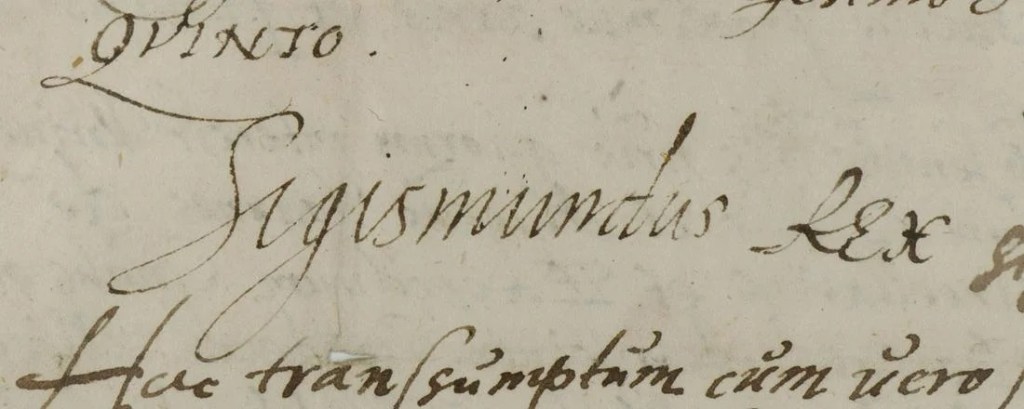 QVINTO.
Sigismundus REX
Hoc transsumptum cum uero